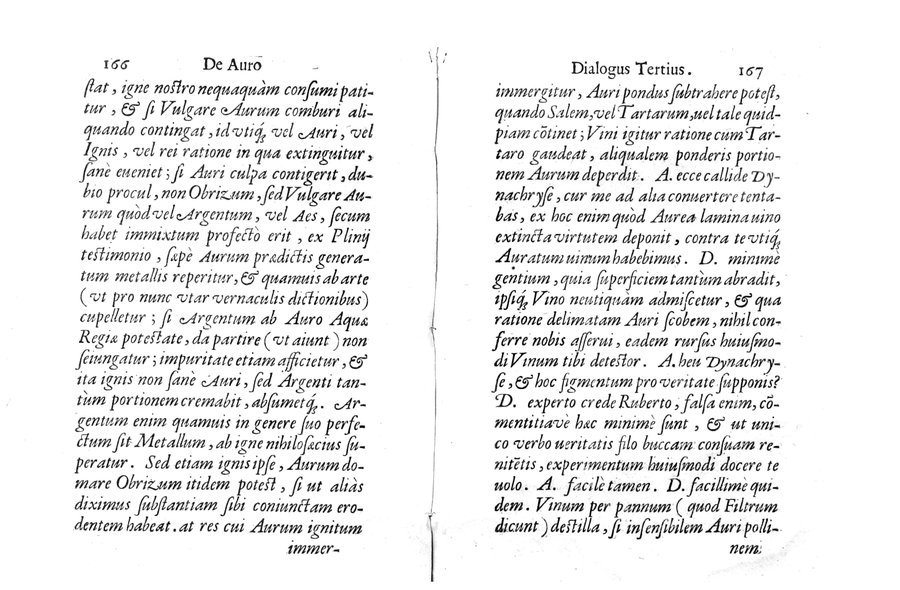 166 De Auro
ſtat, igne noſtro nequaquàm conſumi pati-
tur, & ſi Vulgare Aurum comburi ali-
quando contingat, id vtiq́ꝫ, vel Auri, vel
Ignis, vel rei ratione in qua extinguitur,
ſane eueniet; ſi Auri culpa contigerit, du-
bio procul, non Obrizum, ſed Vulgare Au-
rum quòd vel Argentum, vel Aes, ſecum
habet immixtum profectò erit, ex Plinij
teſtimonio, ſæpè Aurum prædictis genera-
tum metallis reperitur, & quamuis ab arte
(vt pro nunc vtar vernaculis dictionibus)
cupelletur; ſi Argentum ab Auro Aquæ
Regiæ poteſtate, da partire (vt aiunt) non
ſeiungatur; impuritate etiam afficietur, &
ita ignis non ſanè Auri, ſed Argenti tan-
tùm portionem cremabit, abſumetq́ꝫ. Ar-
gentum enim quamuis in genere ſuo perfe-
ctum ſit Metallum, ab igne nihiloſæcius ſu-
peratur. Sed etiam ignis ipſe, Aurum do-
mare Obrizum itidem poteſt, ſi ut aliàs
diximus ſubſtantiam ſibi coniunctam ero-
dentem habeat. at res cui Aurum ignitum
immer-
Dialogus Tertius. 167
immergitur, Auri pondus ſubtrahere poteſt,
quando Salem, vel Tartarum, uel tale quid-
piam cõtinet; Vini igitur ratione cum Tar-
taro gaudeat, aliqualem ponderis portio-
nem Aurum deperdit. A. ecce callide Dy-
nachryſe, cur me ad alia conuertere tenta-
bas, ex hoc enim quòd Aurea lamina uino
extincta virtutem deponit, contra te vtiq́ꝫ
Auratum uinum habebimus. D. minimè
gentium, quia ſuperficiem tantùm abradit,
ipſiq́ꝫ Vino neutiquàm admiſcetur, & qua
ratione delimatam Auri ſcobem, nihil con-
ferre nobis aſſerui, eadem rurſus huiuſmo-
di Vinum tibi deteſtor. A. heu Dynachry-
ſe, & hoc figmentum pro veritate ſupponis?
D. experto crede Ruberto, falſa enim, cõ-
mentitiavè hæc minimè ſunt, & ut uni-
co verbo ueritatis filo buccam conſuam re-
nitẽtis, experimentum huiuſmodi docere te
uolo. A. facilè tamen. D. facillimè qui-
dem. Vinum per pannum (quod Filtrum
dicunt) deſtilla, ſi inſenſibilem Auri polli-
nem